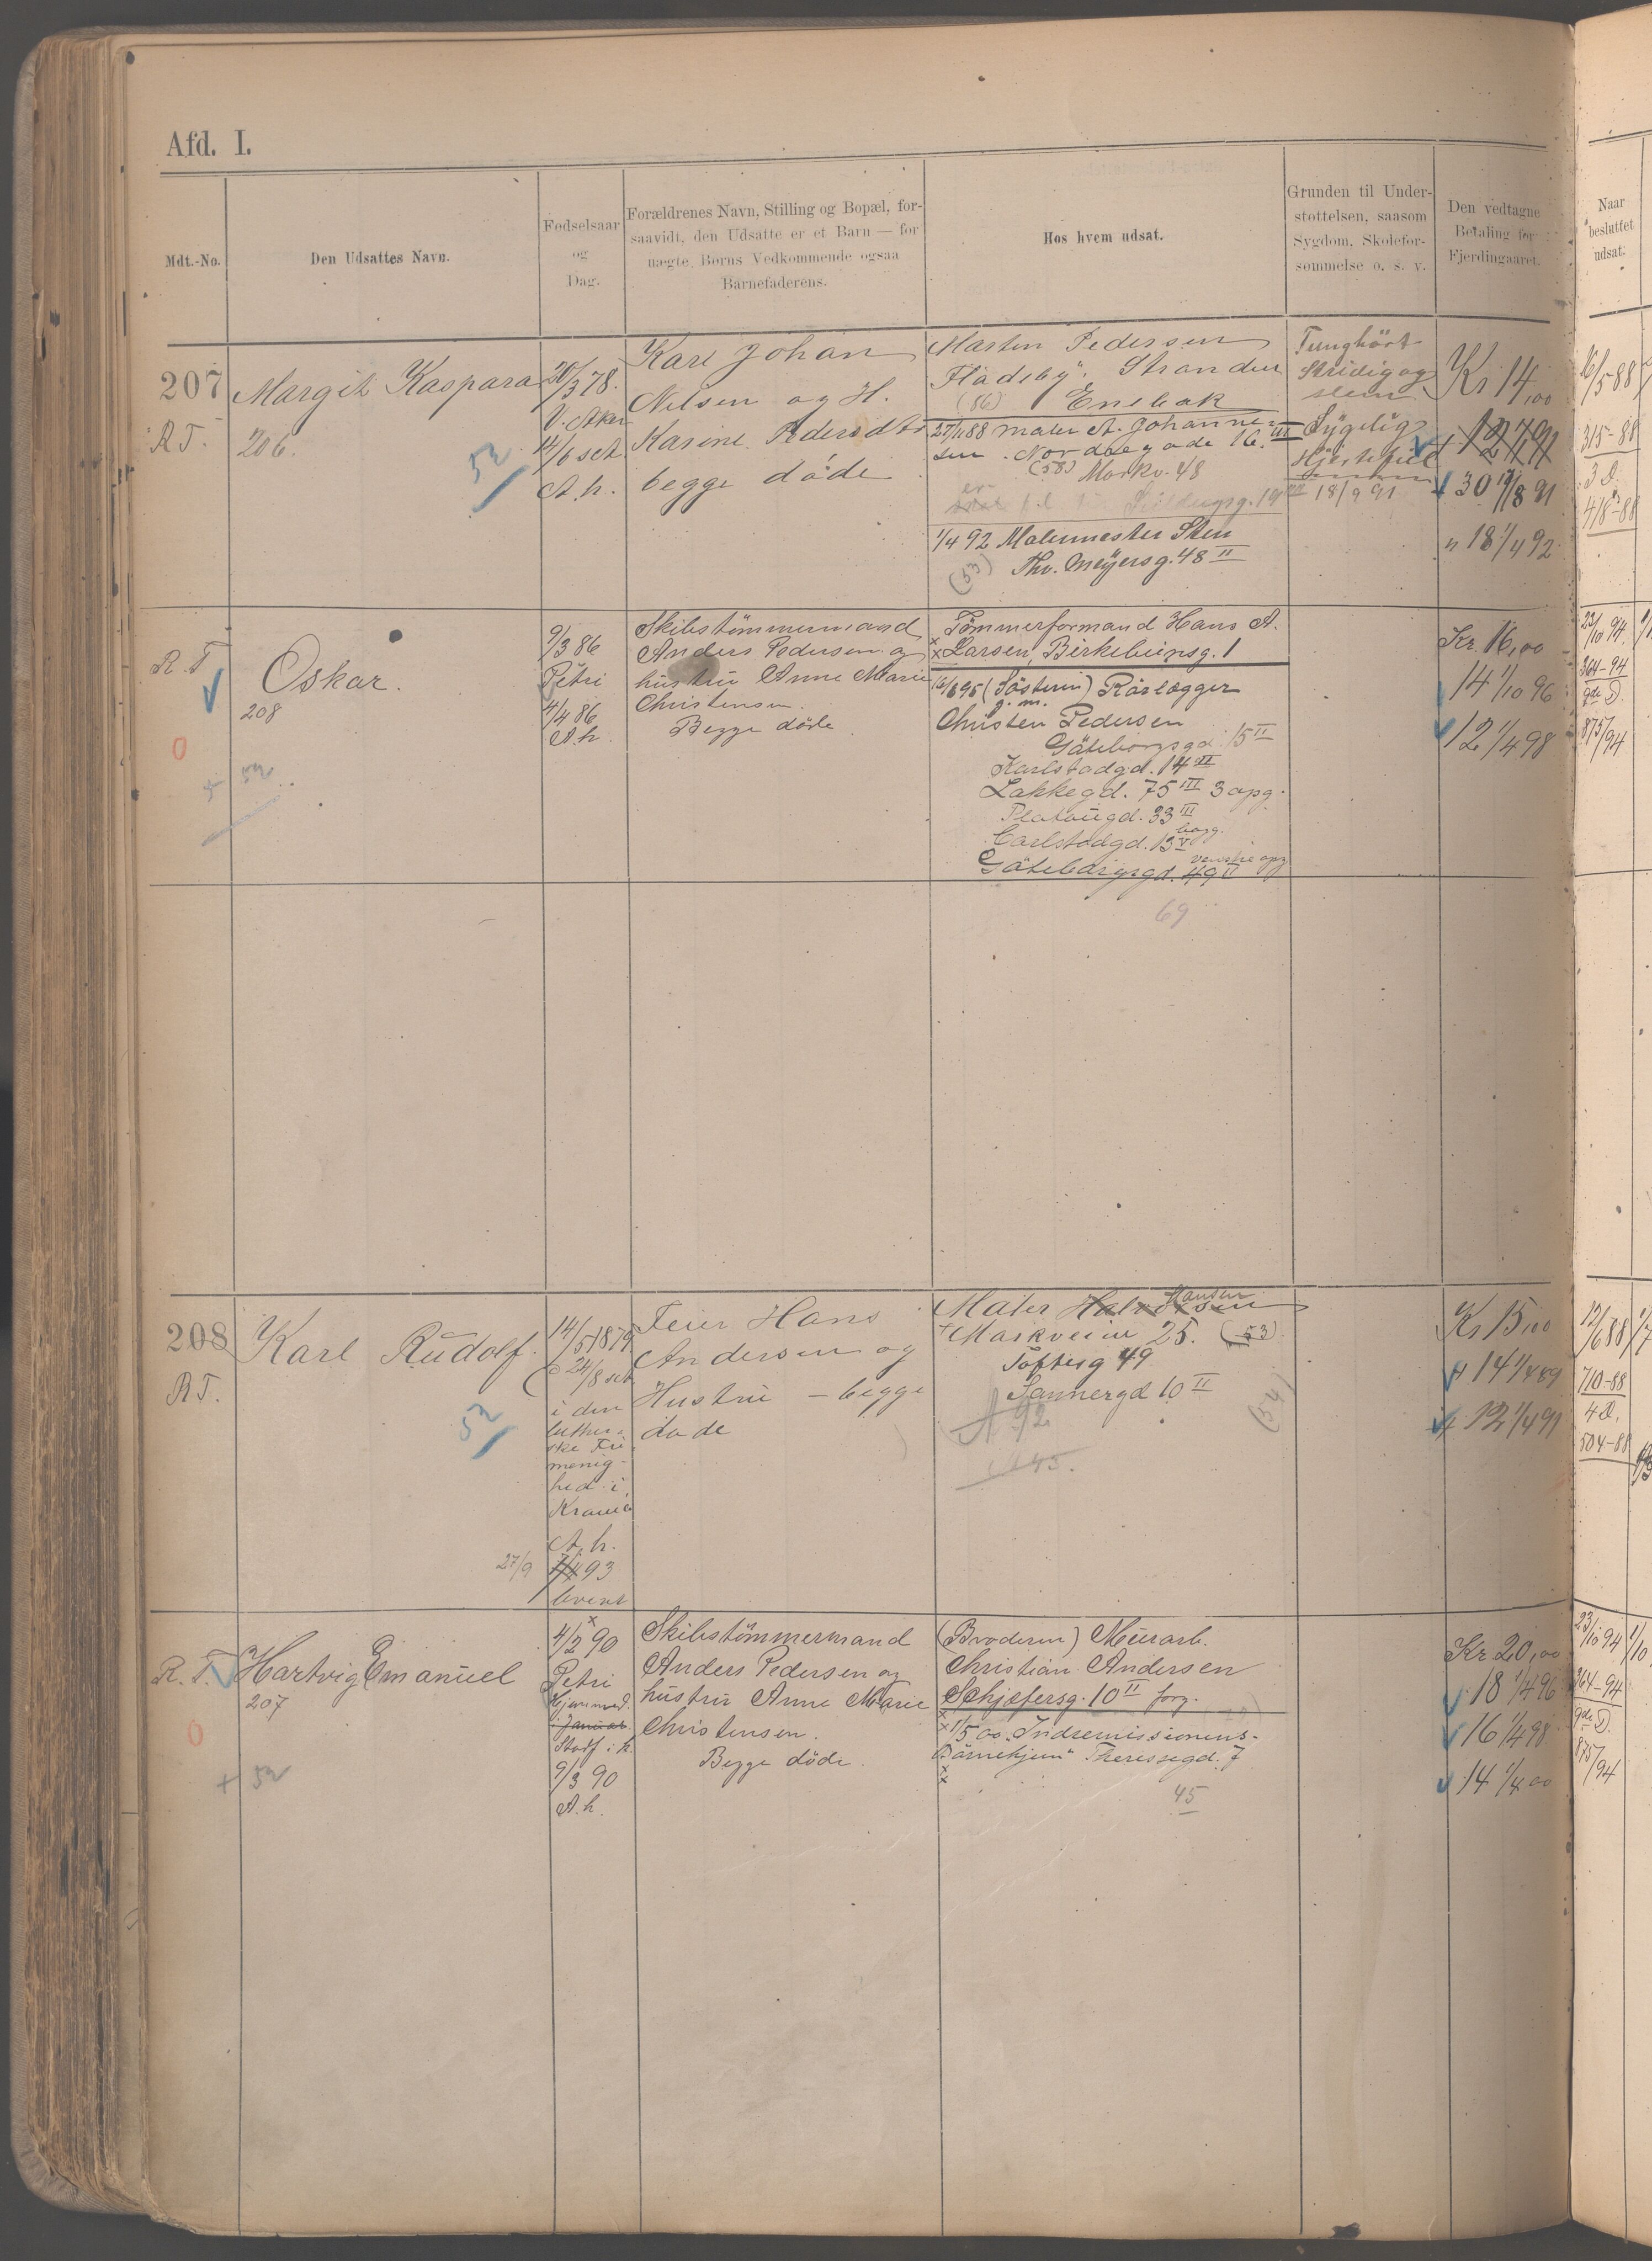 Afd. I.
Mdt.-No.
Den Udsattes Navn.
Fødselsaar
og
Dag.
Forældrenes Navn, Stilling og Bopæl, for-
saavidt, den Udsatte er et Barn — for
uægte Børns Vedkommende ogsaa
Barnefaderens.
Hos hvem udsat.
Grunden til Under-
støttelsen, saasom
Sygdom, Skolefor-
sømmelse o. s. v.
Den vedtagne
Betaling for
Fjerdingaaret.
Naar
besluttet
udsat.
207
R T.
Margit Kaspara
206.
52
20/3 78.
V. Aker
14/6 sct
A. h.
Karl Johan
Nilsen og H.
Karine Pedersdtr
begge døde
Marten Pedersen
Fladeby, Stranden
(86) Enebak
27/11 88 maler A. Johanne-
sen. Nordbygade 16. III
(58) Markv. 48
er
1/4 92 Malermester Sten
(53) Thv. Meyersg. 48 II
Tunghørt
Skridig og
slem
Sygelig
Hjertefeil
18/9 91
Kr 14,00
12 1/7 91
30 17/8 91
" 18 1/4 92
16/5-88
315-88
3 D.
418-88
R. T
Oskar.
208
0
52
9/3 86
Petri
4/4 86
A. h.
Skibstømmermand
Anders Pedersen og
hustru Anne Marie
Christensen.
Begge døde
Tømmerformand Hans A.
Larsen, Birkebeinsg. 1
12/6 95 (Søsteren) Rørlægger
g. m.
Christen Pedersen
Gøteborgsgd. 15 II
Karlstadgd. 14 II
Lakkegd. 75 III 3 opg.
Platougd. 33 III
Carlstadgd. 13 V bagg.
Gøteborgsgd. 49 II venstre opg
69
Kr. 16,00
14 1/10 96
12 1/4 98
23/10 94
364-94
gde D.
875/94
208
R T.
Karl Rudolf.
52
27/9
14/5 1879
24/8 sct
i den
luther-
ske Fri
menig-
hed i
Krania
A. h.
93
Feier Hans
Andersen og
Hustru — begge
døde
Maler Halvorsen
Hansen
Markveien 25. (53)
Toftesg 49
Sannergd 10 II
(54)
A 92
Kr 15,00
14 1/4 89
12 1/4 91
12/6 88
710-88
4 D.
504-88
R. T.
Hartvig Emanuel
207
0
+ 52
4/2 90
Petri
Hjemmed.
i Januar
Stadf. i k.
9/3 90
A. h.
Skibstømmermand
Anders Pedersen og
hustru Anne Marie
Christensen.
Begge døde.
(Broderen) Murarb.
Christian Andersen
Schjøfersg. 10 II forg.
1/5 00. Indremissionens-
Børnehjem Theresegd. 7
45
Kr 20,00
18 1/4 96
16 1/4 98
14 1/4 00
23/10 94
364-94
gde D.
875/94